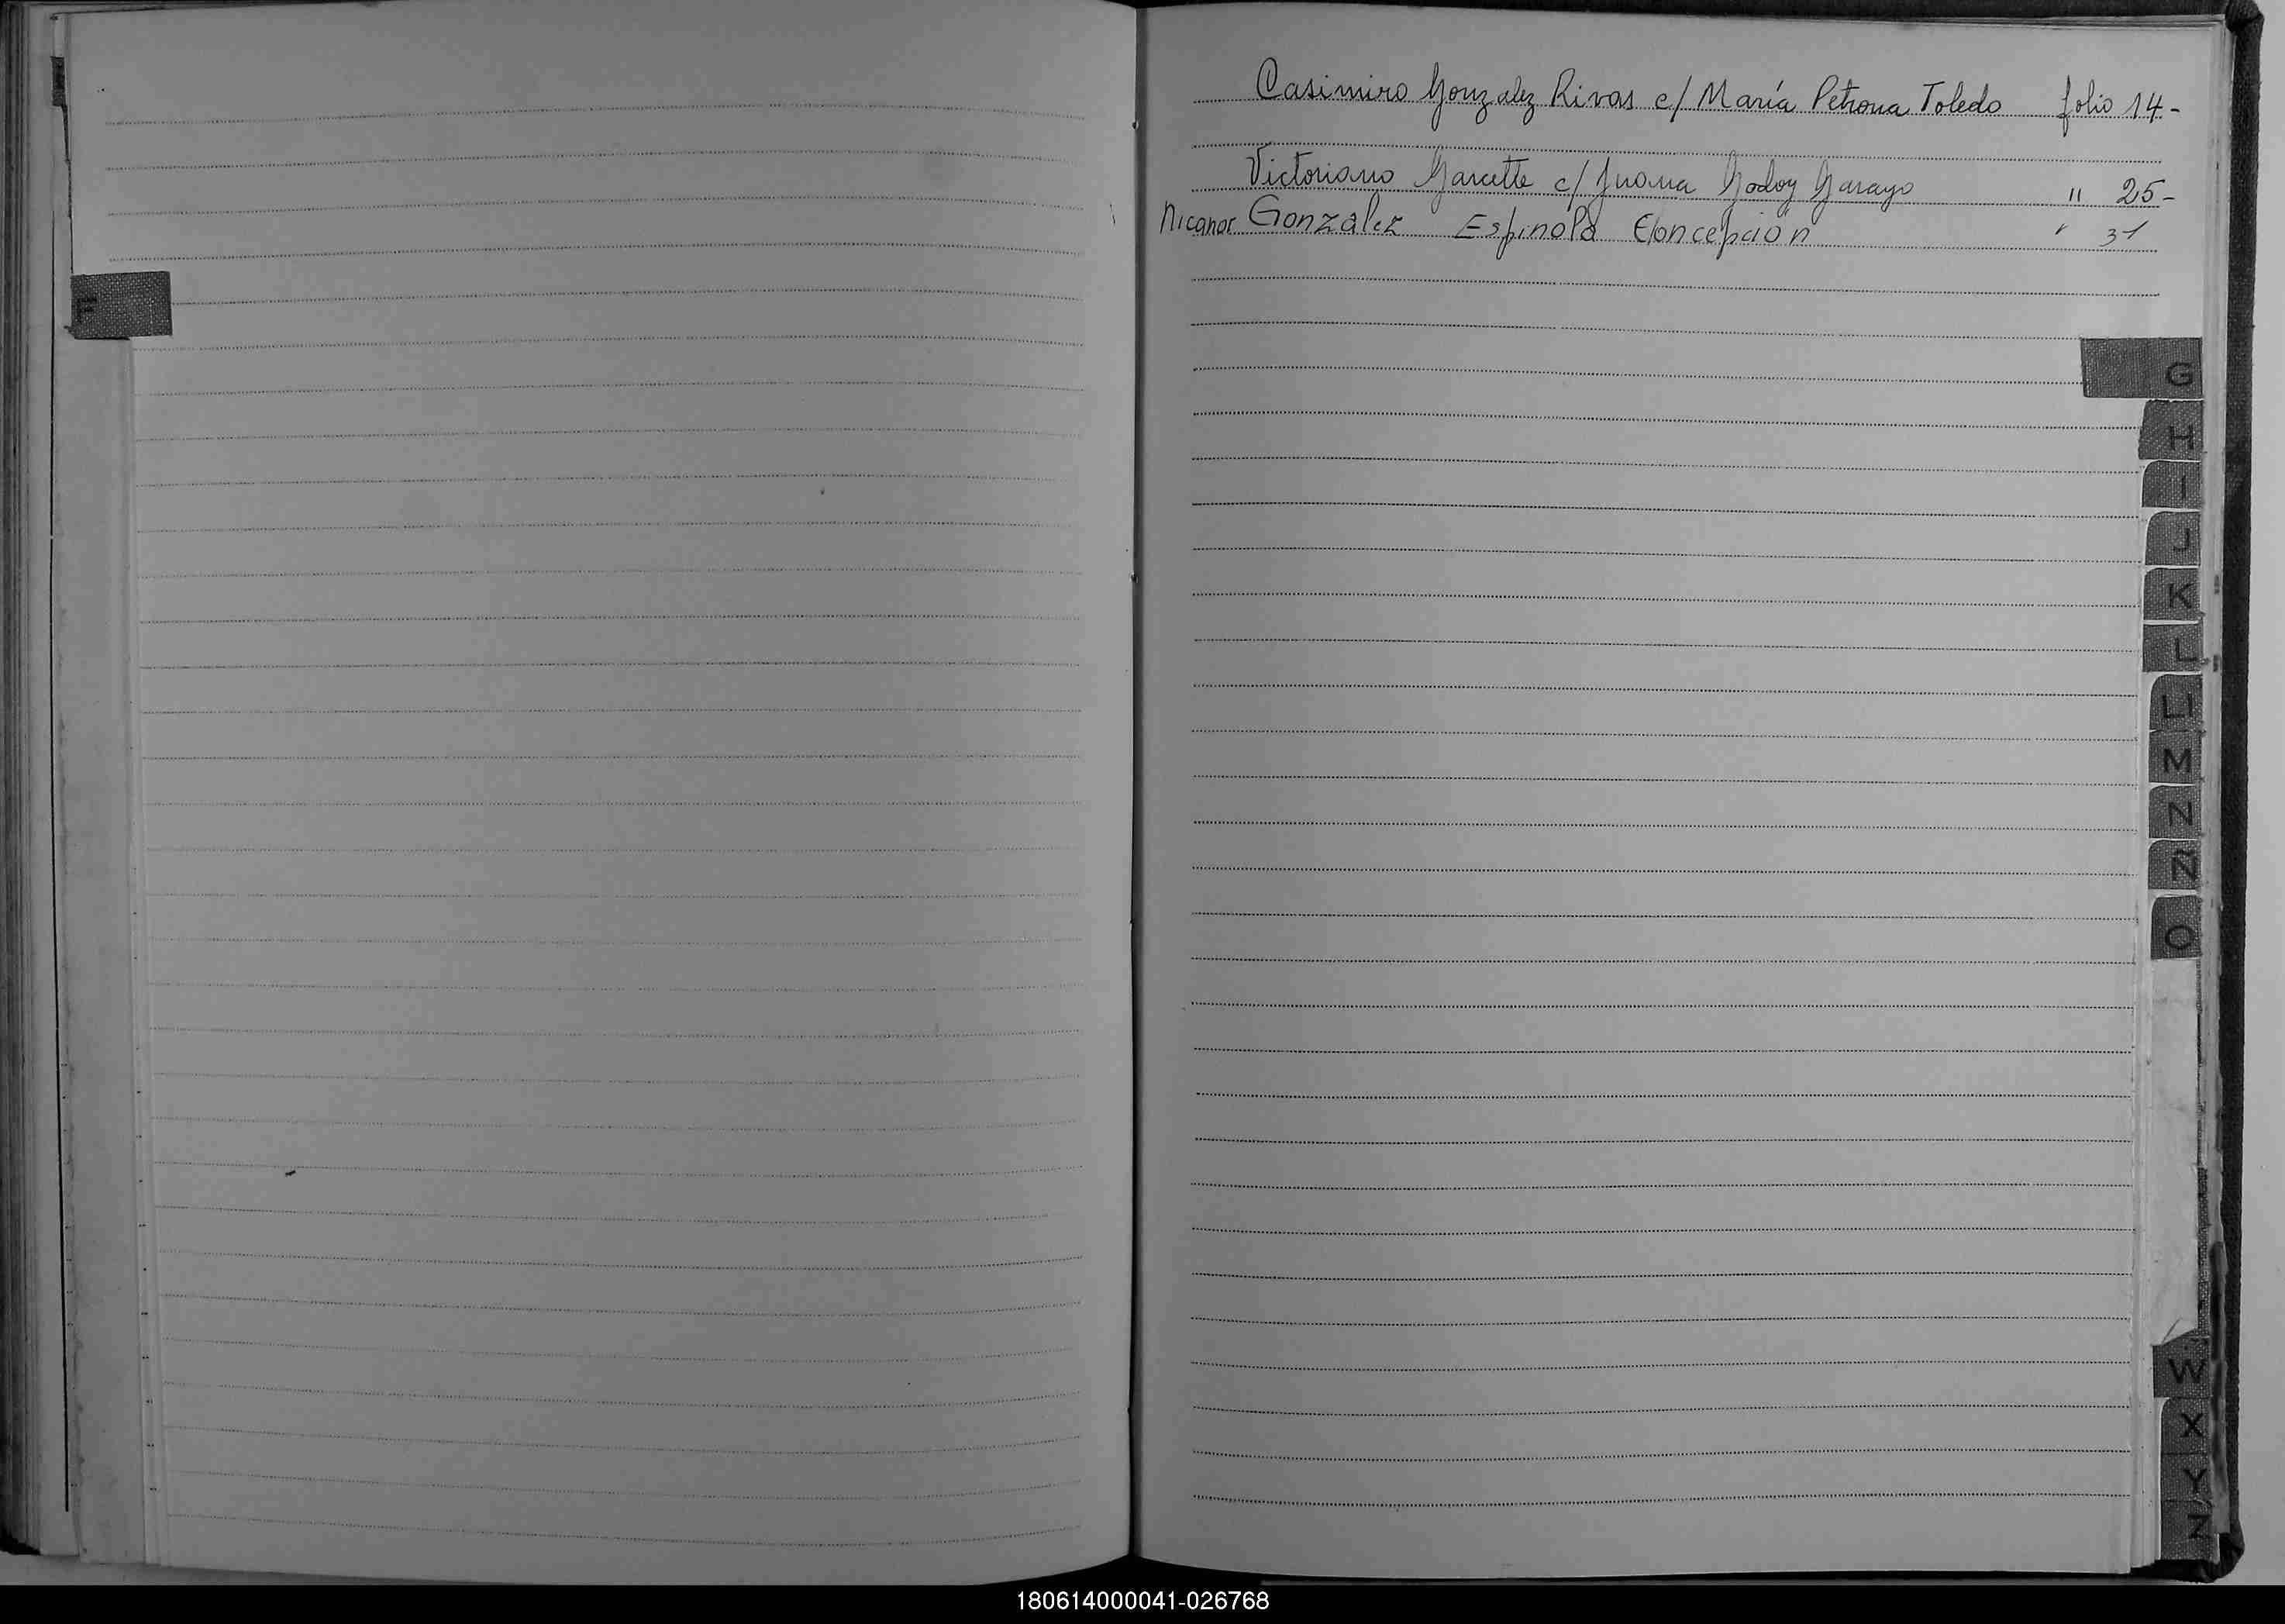 F
Casimiro Gonzalez Rivas c/ María Petrona Toledo folio 14-
Victoriano Garcette c/ Juana Godoy Garayo " 25-
Nicanor Gonzalez Espinola Concepción " 31
G
H
I
J
K
L
Ll
M
N
Ñ
O
W
X
Y
Z
180614000041-026768